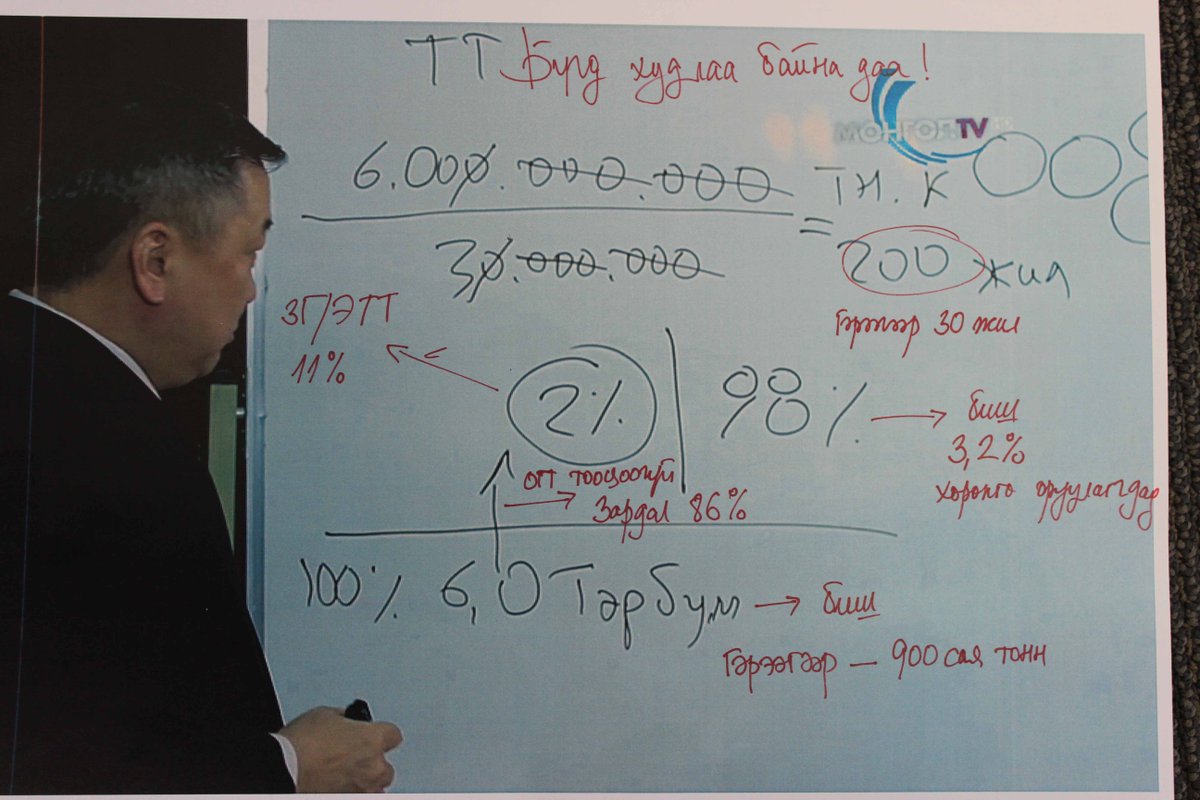 ТТ Бүгд худлаа байна даа!
МОНГОЛ TV HD
6.000.000.000
30.000.000
= ТН.К
200 жил
Гэрээгээр 30 жил
ЗГ/ЭТТ
11%
2%
98%
биш
3,2%
хөрөнгө оруулагчдад
ОТГ тооцоогүй
Зардал 86%
100% 6,0 Тэрбум
биш
Гэрээгээр – 900 сая тонн